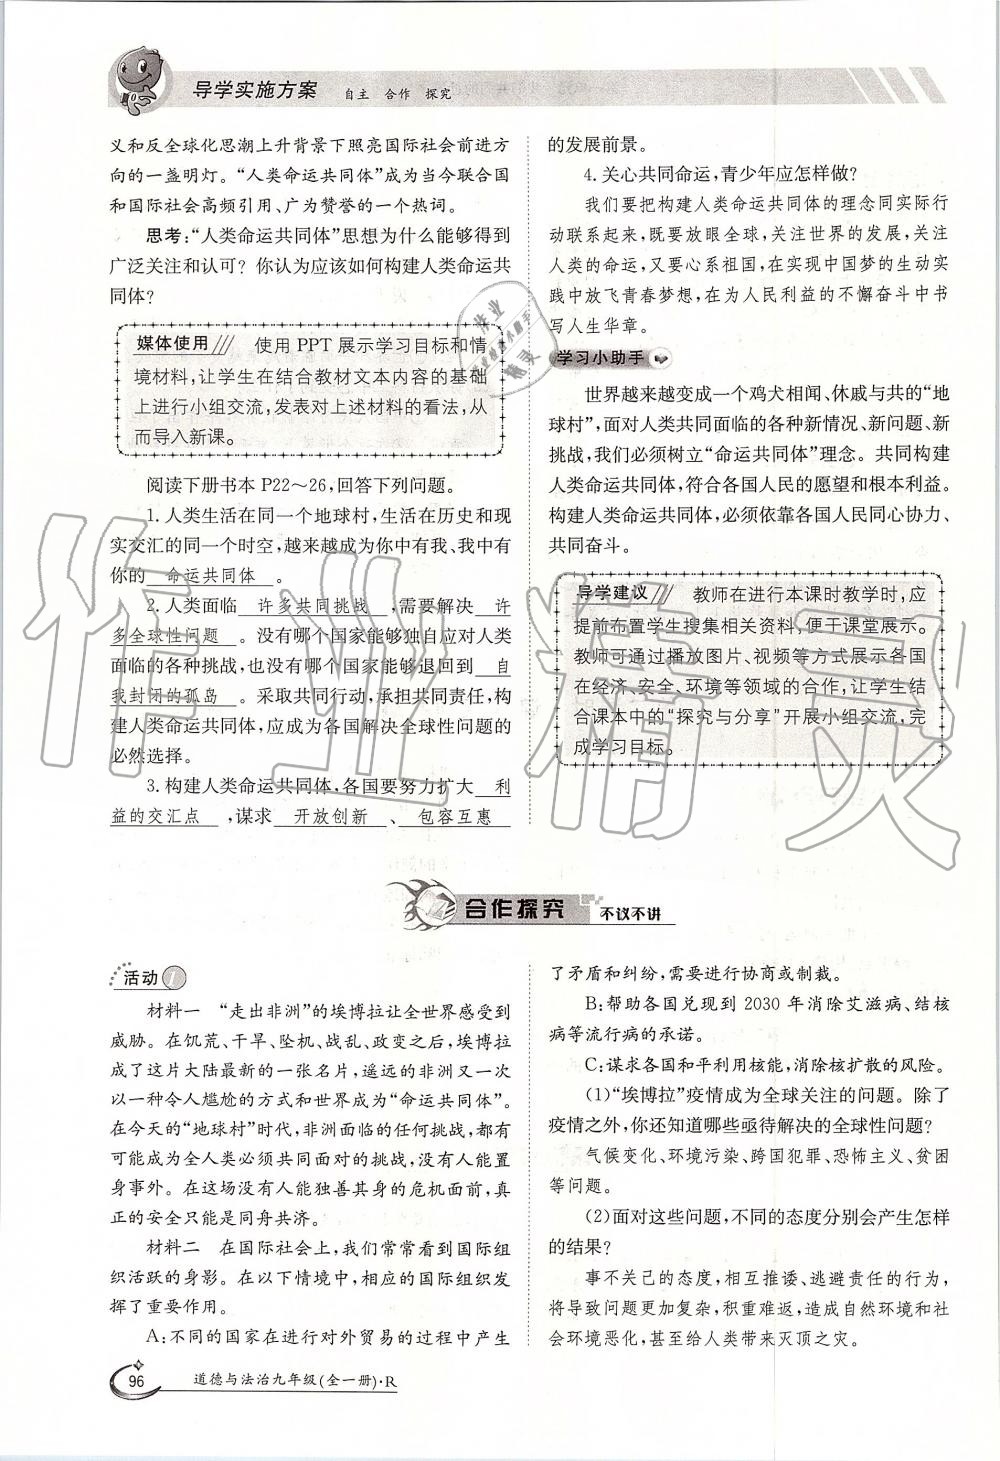 导学实施方案 自主 合作 探究
义和反全球化思潮上升背景下照亮国际社会前进方
向的一盏明灯。“人类命运共同体”成为当今联合国
和国际社会高频引用、广为赞誉的一个热词。
思考:“人类命运共同体”思想为什么能够得到
广泛关注和认可? 你认为应该如何构建人类命运共
同体?
媒体使用 使用 PPT 展示学习目标和情
境材料,让学生在结合教材文本内容的基础
上进行小组交流,发表对上述材料的看法,从
而导入新课。
阅读下册书本 P22～26,回答下列问题。
1. 人类生活在同一个地球村,生活在历史和现
实交汇的同一个时空,越来越成为你中有我、我中有
你的 命运共同体 。
2. 人类面临 许多共同挑战 ,需要解决 许
多全球性问题 。没有哪个国家能够独自应对人类
面临的各种挑战,也没有哪个国家能够退回到 自
我封闭的孤岛 。采取共同行动,承担共同责任,构
建人类命运共同体,应成为各国解决全球性问题的
必然选择。
3. 构建人类命运共同体,各国要努力扩大 利
益的交汇点 ,谋求 开放创新 、 包容互惠
的发展前景。
4. 关心共同命运,青少年应怎样做?
我们要把构建人类命运共同体的理念同实际行
动联系起来,既要放眼全球,关注世界的发展,关注
人类的命运,又要心系祖国,在实现中国梦的生动实
践中放飞青春梦想,在为人民利益的不懈奋斗中书
写人生华章。
学习小助手
世界越来越变成一个鸡犬相闻、休戚与共的“地
球村”,面对人类共同面临的各种新情况、新问题、新
挑战,我们必须树立“命运共同体”理念。共同构建
人类命运共同体,符合各国人民的愿望和根本利益。
构建人类命运共同体,必须依靠各国人民同心协力、
共同奋斗。
导学建议 教师在进行本课时教学时,应
提前布置学生搜集相关资料,便于课堂展示。
教师可通过播放图片、视频等方式展示各国
在经济、安全、环境等领域的合作,让学生结
合课本中的“探究与分享”开展小组交流,完
成学习目标。
合作探究 不议不讲
活动 1
材料一 “走出非洲”的埃博拉让全世界感受到
威胁。在饥荒、干旱、坠机、战乱、政变之后,埃博拉
成了这片大陆最新的一张名片,遥远的非洲又一次
以一种令人尴尬的方式和世界成为“命运共同体”。
在今天的“地球村”,非洲面临的任何挑战,都有
可能成为全人类必须共同面对的挑战,没有人能置
身事外。在这场没有人能独善其身的危机面前,真
正的安全只能是同舟共济。
材料二 在国际社会上,我们常常看到国际组
织活跃的身影。在以下情境中,相应的国际组织发
挥了重要作用。
A:不同的国家在进行对外贸易的过程中产生
了矛盾和纠纷,需要进行协商或制裁。
B:帮助各国兑现到 2030 年消除艾滋病、结核
病等流行病的承诺。
C:谋求各国和平利用核能,消除核扩散的风险。
(1)“埃博拉”疫情成为全球关注的问题。除了
疫情之外,你还知道哪些亟待解决的全球性问题?
气候变化、环境污染、跨国犯罪、恐怖主义、贫困
等问题。
(2)面对这些问题,不同的态度分别会产生怎样
的结果?
事不关己的态度,相互推诿、逃避责任的行为,
将导致问题更加复杂,积重难返,造成自然环境和社
会环境恶化,甚至给人类带来灭顶之灾。
96 道德与法治九年级(全一册)·R
作业精灵